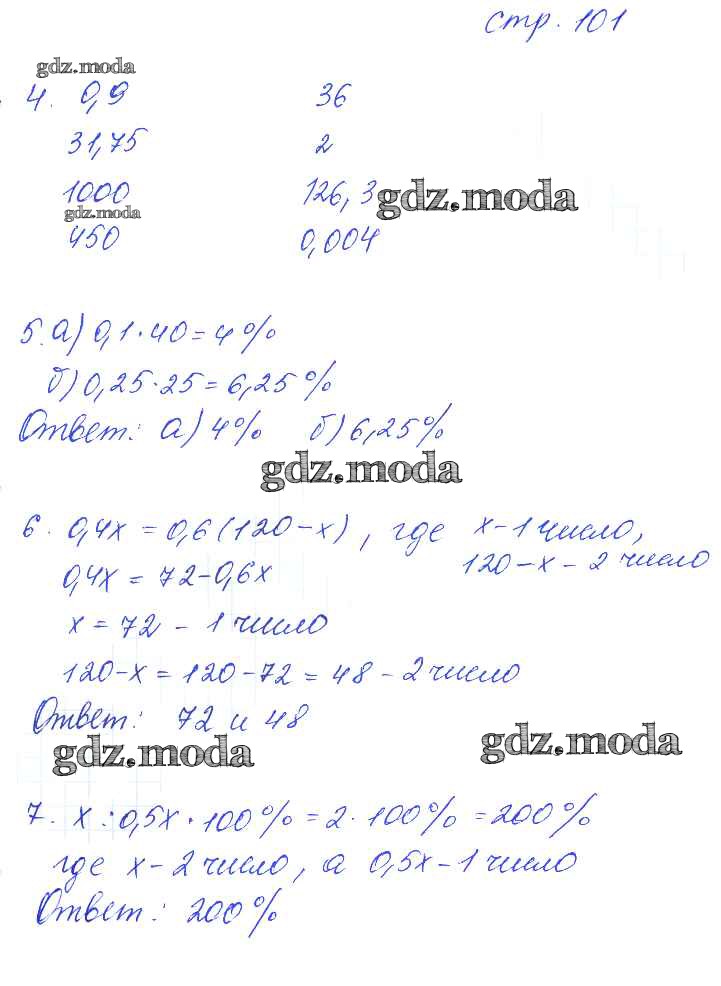 стр. 101
gdz.moda
4. 0,9 36
31,75 2
1000 126,3
gdz.moda
gdz.moda
450 0,004
5. а) 0,1·40=4%
б) 0,25·25=6,25%
Ответ: а) 4% б) 6,25%
gdz.moda
6. 0,4x=0,6(120-x), где x-1 число,
120-x-2 число
0,4x=72-0,6x
x=72-1 число
120-x=120-72=48-2 число
Ответ: 72 и 48
gdz.moda
gdz.moda
7. x:0,5x·100%=2·100%=200%
где x-2 число, а 0,5x-1 число
Ответ: 200%